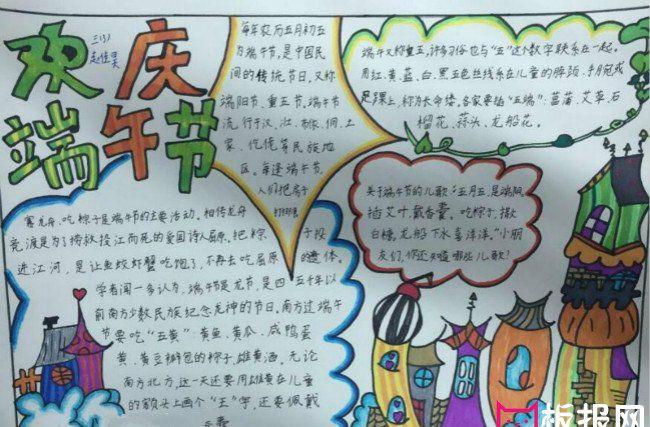 欢庆
端午节
三(3)
赵佳昊
每年农历五月初五
为端午节,是中国民
间的传统节日,又称
端阳节、重五节。端午节
流行于汉、壮、布依、侗、土
家、仡佬等民族地
区。每逢端午节,
人们把房子
打扫得
端午又称重五,许多习俗也与“五”这个数字联系在一起。
用红、黄、蓝、白、黑五色丝线系在儿童的脖颈、手腕或
是足踝上,称为长命缕。各家要插“五端”:菖蒲、艾草、石
榴花、蒜头、龙船花。
关于端午节的儿歌“五月五,是端阳。
插艾叶,戴香囊。吃粽子,撒
白糖,龙船下水喜洋洋。”小朋
友们,你还知道哪些儿歌?
赛龙舟、吃粽子是端午节的主要活动。相传龙舟
竞渡是为了捞救投江而死的爱国诗人屈原。把粽子投
进江河,是让鱼蛟虾蟹吃饱了,不再去吃屈原的遗体。
学者闻一多认为,端午节是龙节,是四五千年以
前南方少数民族纪念龙神的节日。南方过端午
节要吃“五黄”:黄鱼、黄瓜、咸鸭蛋
黄、黄豆瓣包的粽子,雄黄酒。无论
南方北方,这一天还要用雄黄在儿童
的额头上画个“王”字,还要佩戴
香囊
板报网